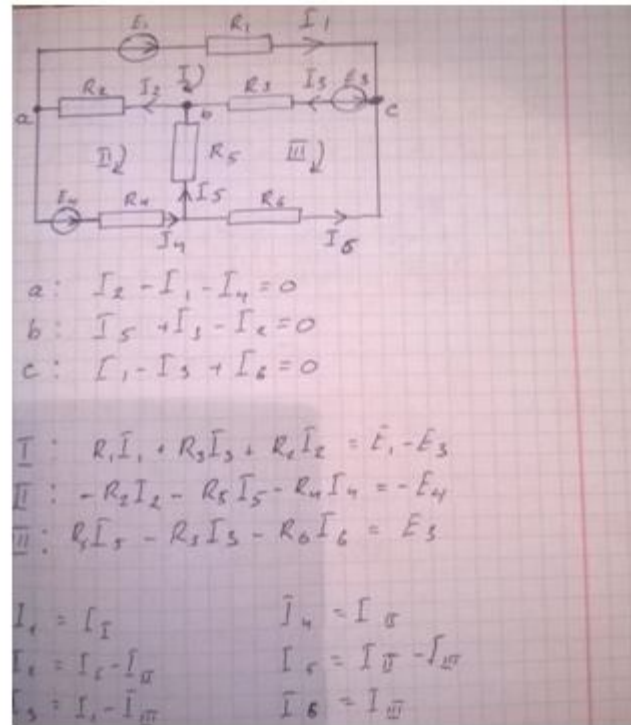 E₁ R₁ I₁
a R₂ I₂ I b R₃ I₃ E₃ c
II R₅ III
E₄ R₄ I₅ R₆
I₄ I₆
a: I₂ - I₁ - I₄ = 0
b: I₅ + I₃ - I₂ = 0
c: I₁ - I₃ + I₆ = 0
I: R₁I₁ + R₃I₃ + R₂I₂ = E₁ - E₃
II: -R₂I₂ - R₅I₅ - R₄I₄ = -E₄
III: R₅I₅ - R₃I₃ - R₆I₆ = E₃
I₁ = I_I I₄ = I_II
= I_II - I_III
I₃ = I₁ - I_III I₆ = I_III